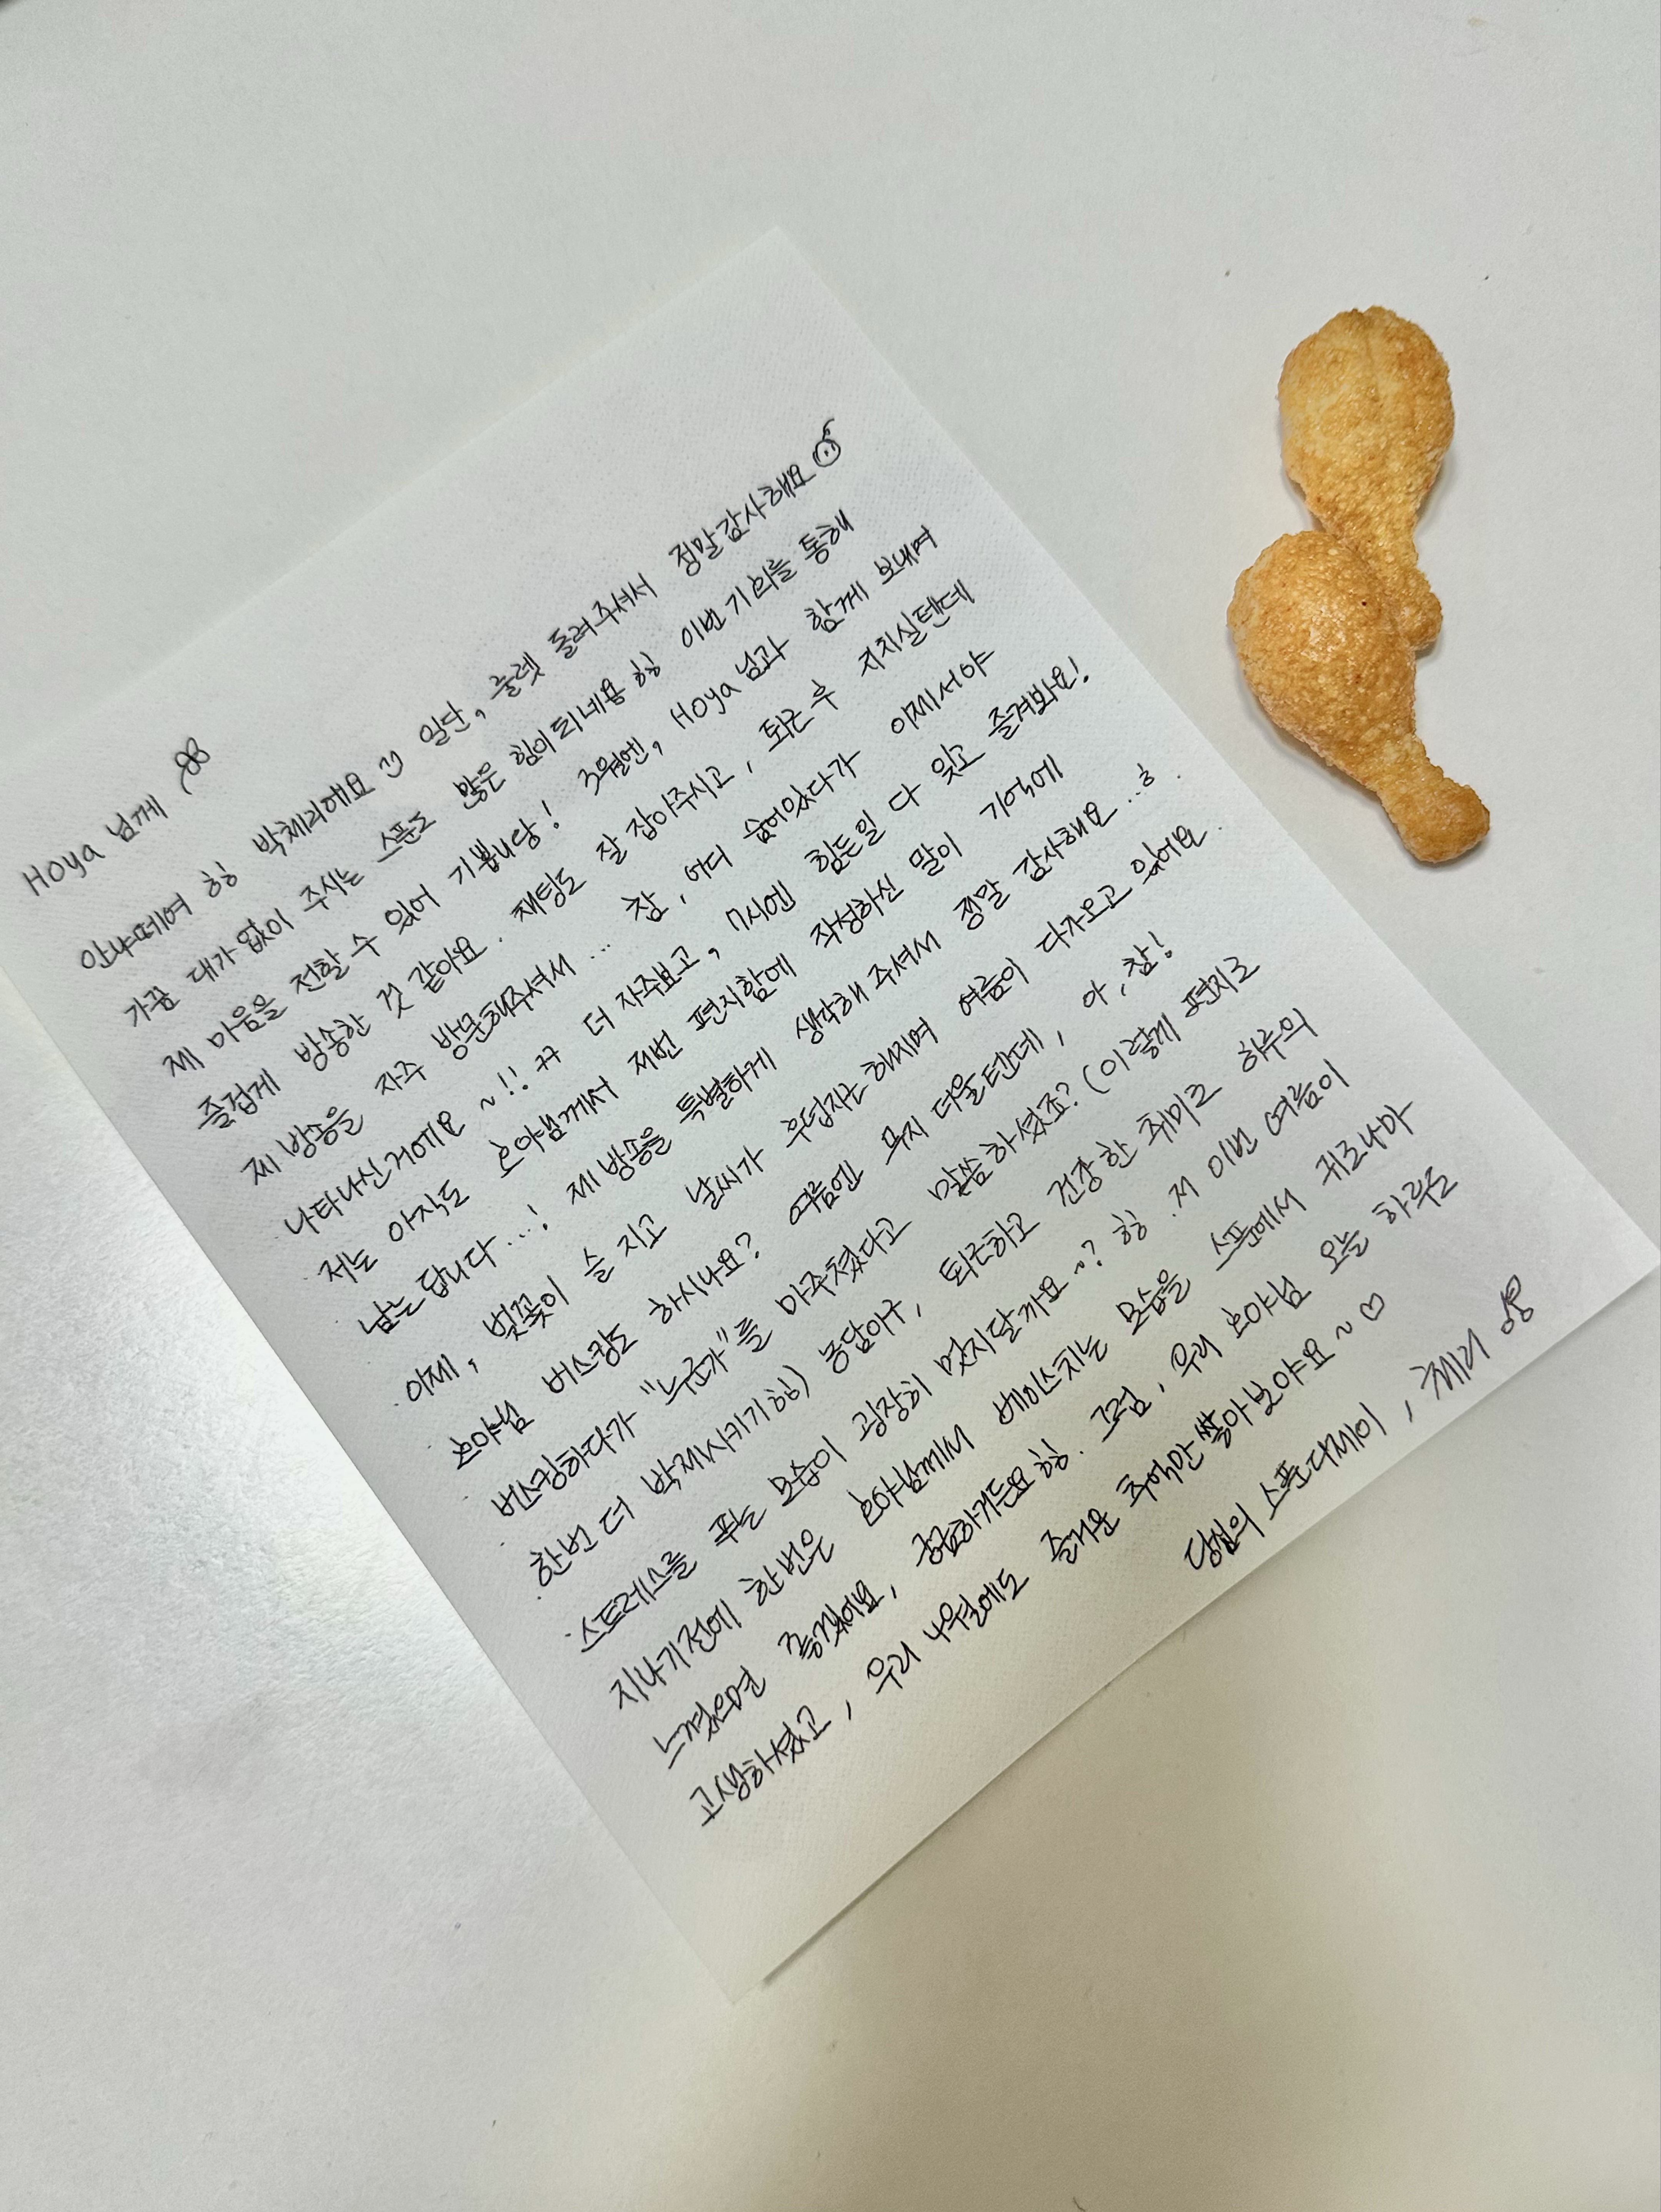 Hoya 님께
안냐떼여 힝 박체리에요 일단, 룰렛 돌려주셔서 정말 감사해요
가끔 대가 없이 주시는 스푼도 많은 힘이 되네용 힝 이번 기회를 통해
제 마음을 전할 수 있어 기쁩니당! 3월엔, Hoya 님과 함께 보내여
즐겁게 방송한 것 같아요. 채팅도 잘 잡아주시고, 퇴근 후 지치실텐데
제 방송을 자주 방문해주셔서 ... 참, 어디 숨어있다가 이제서야
나타나신거에요 ~!! ㄲ 더 자주보고, 7시엔 힘든일 다 잊고 즐겨봐요!
저는 아직도 호야님께서 저번 편지함에 작성하신 말이 기억에
남는답니다...! 제 방송을 특별하게 생각해 주셔서 정말 감사해요...ㅎ.
이제, 벚꽃이 슬 지고 날씨가 후덥지근해지며 여름이 다가오고 있어요.
호야님 버스킹도 하시나요? 여름엔 무지 더울텐데, 아, 참!
버스킹하다가 "누군가"를 마주쳤다고 말씀하셨죠? (이렇게 편지로
한번 더 박제시키기 힝) 농담아구, 퇴근하고 건강한 취미로 하루의
스트레스를 푸는 모습이 굉장히 멋지달까요~? 힝. 저 이번 여름이
지나기전에 한번은 호야님께서 베이스치는 모습을 스푼에서 귀로나마
느꼈으면 좋겠어요, 궁금하거든요 힝. 그럼, 우리 호야님 오늘 하루도
고생하셨고, 우리 4월에도 즐거운 추억만 쌓아보아요 ~ ♡
당신의 스푼디제이, 체리